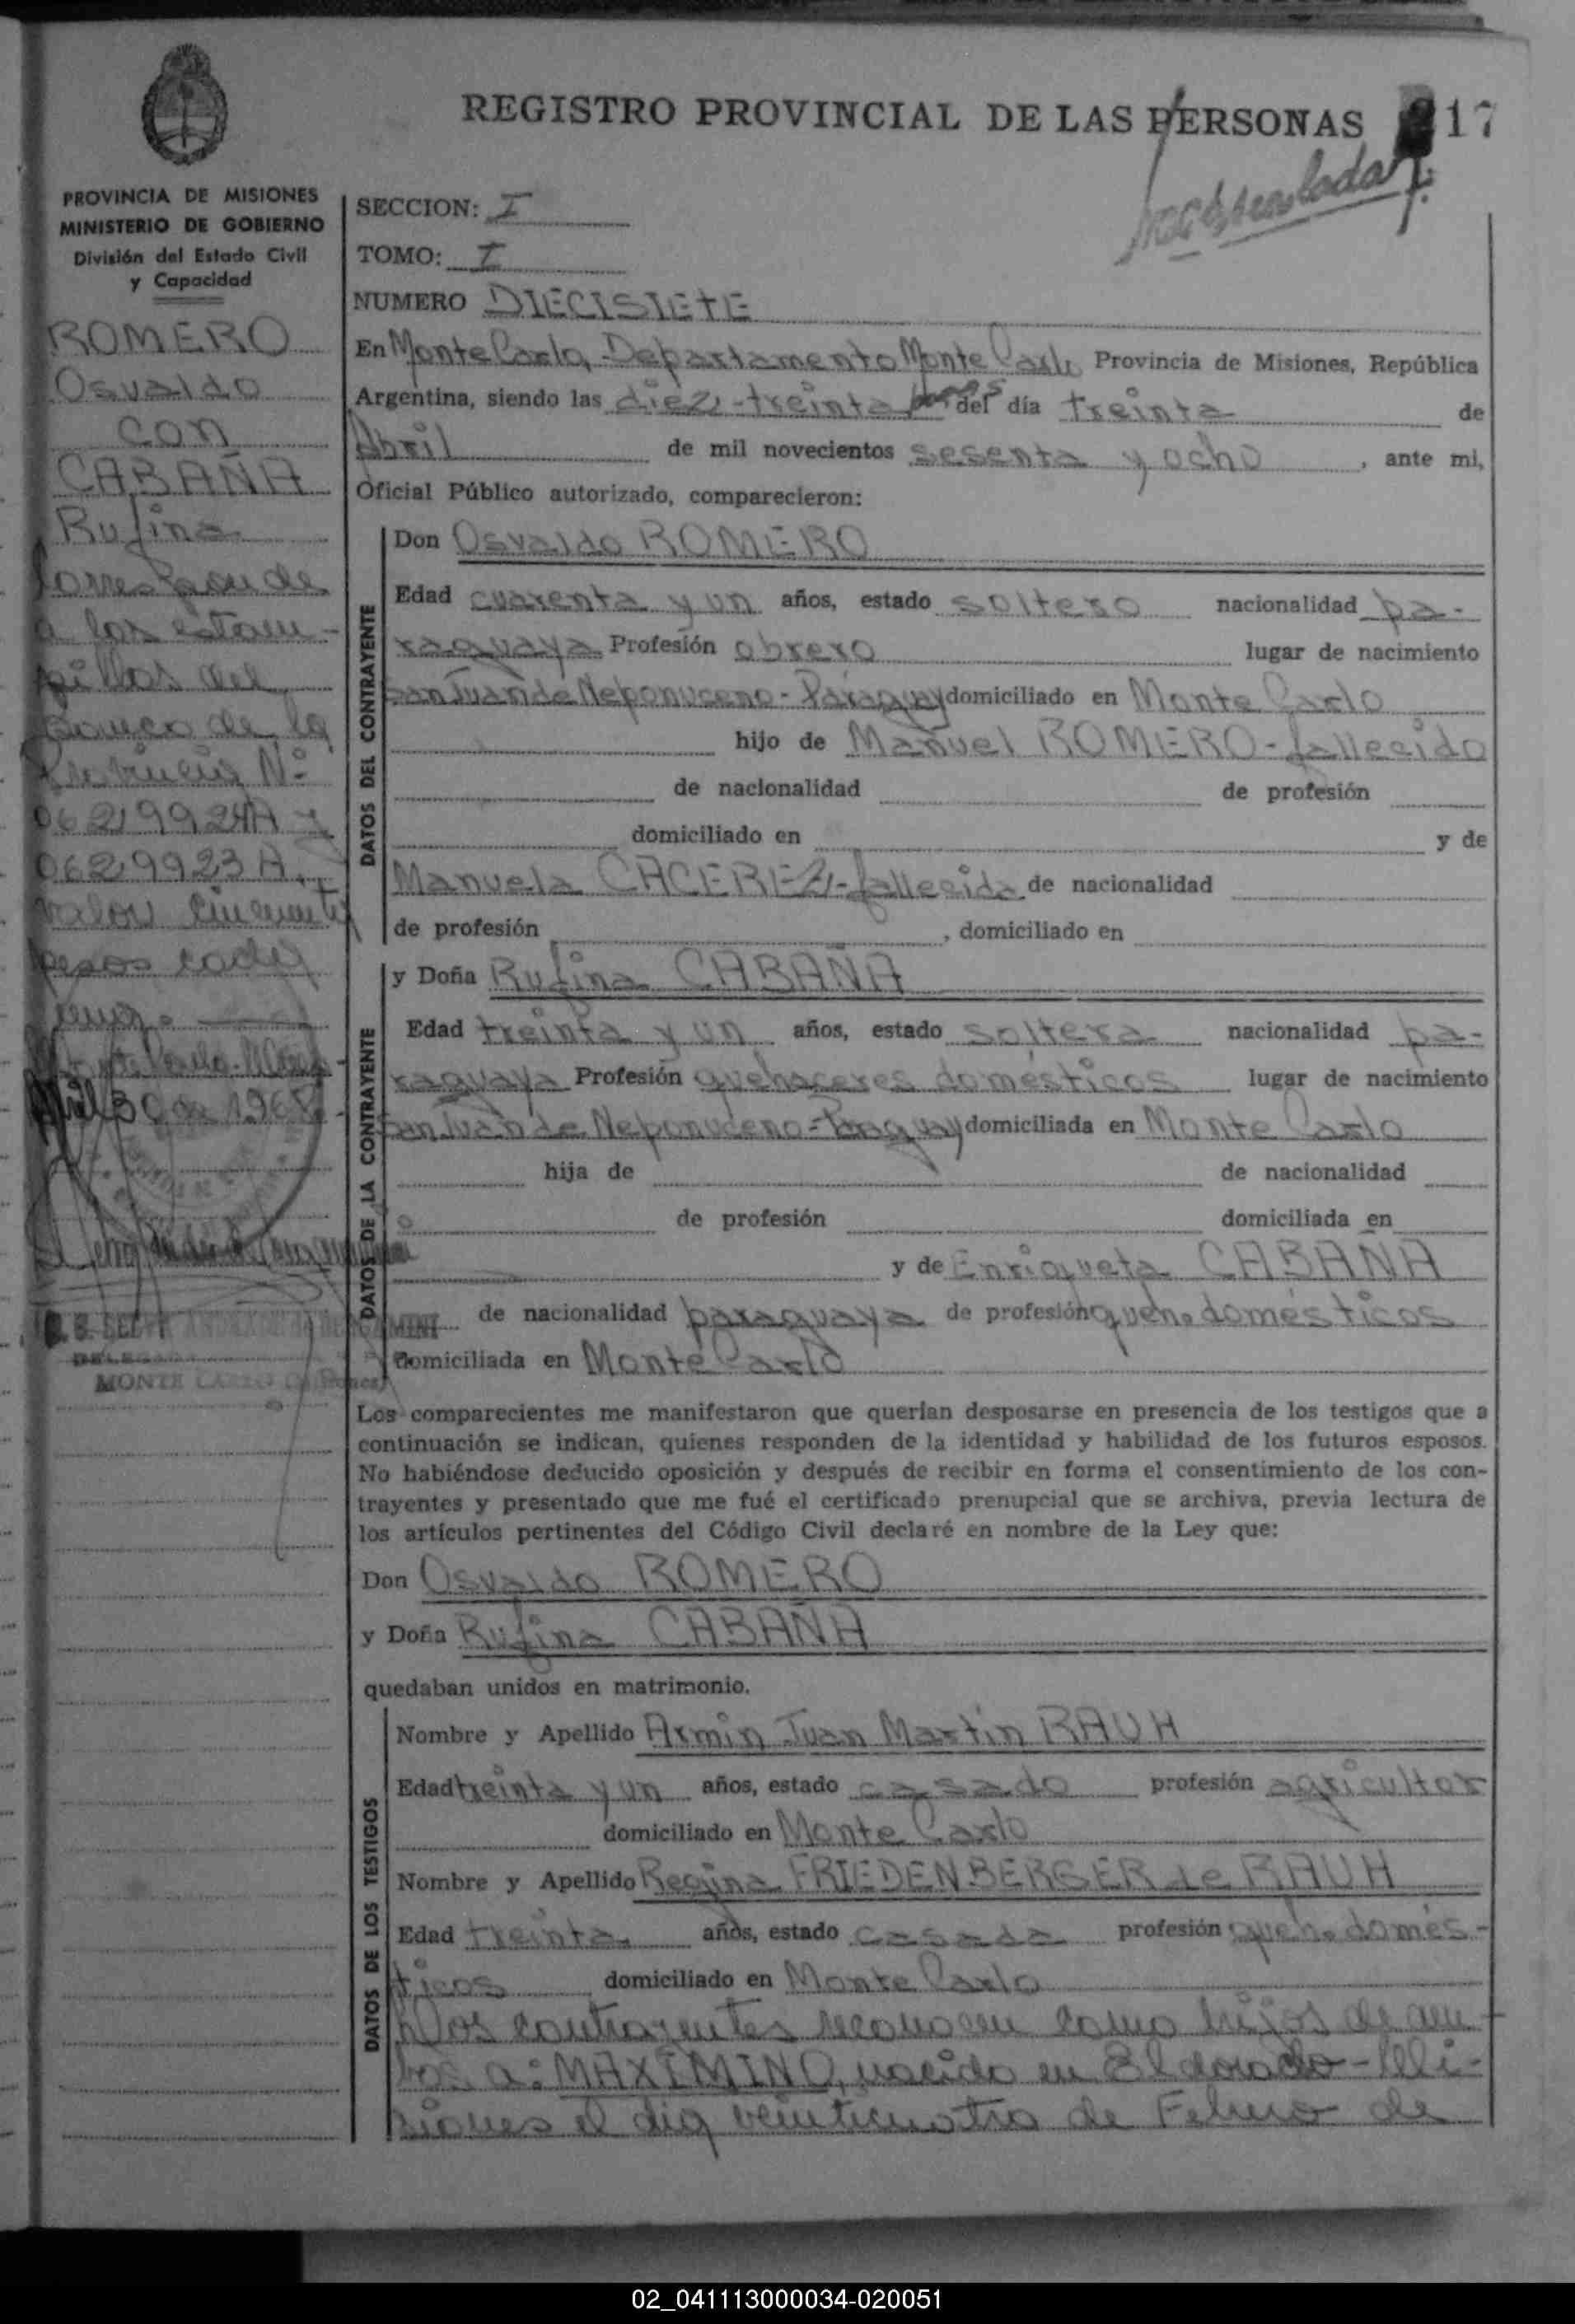 REGISTRO PROVINCIAL DE LAS PERSONAS 17
PROVINCIA DE MISIONES
MINISTERIO DE GOBIERNO
División del Estado Civil
y Capacidad
ROMERO
Osvaldo
con
CABAÑA
Rufina
Corresponde
a las estam-
pillas del
Banco de la
Provincia Nº
0629924A y
0629923A.
valor cincuenta
pesos cada
una.
Monte Carlo
Abril 30 de 1968
DELEGADA
MONTE CARLO (Misiones)
SECCION: I
TOMO: I
NUMERO DIECISIETE
En Monte Carlo, Departamento Monte Carlo Provincia de Misiones, República
Argentina, siendo las diez-treinta horas del día treinta de
Abril de mil novecientos sesenta y ocho, ante mi,
Oficial Público autorizado, comparecieron:
DATOS DEL CONTRAYENTE
Don Osvaldo ROMERO
Edad cuarenta y un años, estado soltero nacionalidad pa-
raguaya Profesión obrero lugar de nacimiento
San Juan de Neponuceno - Paraguay domiciliado en Monte Carlo
hijo de Manuel ROMERO - fallecido
de nacionalidad de profesión
domiciliado en y de
Manuela CACEREZ - fallecida de nacionalidad
de profesión , domiciliado en
DATOS DE LA CONTRAYENTE
y Doña Rufina CABAÑA
Edad treinta y un años, estado soltera nacionalidad pa-
raguaya Profesión quehaceres domésticos lugar de nacimiento
San Juan de Neponuceno - Paraguay domiciliada en Monte Carlo
hija de de nacionalidad
de profesión domiciliada en
y de Enriqueta CABAÑA
de nacionalidad paraguaya de profesión queh. domésticos
domiciliada en Monte Carlo
Los comparecientes me manifestaron que querían desposarse en presencia de los testigos que a
continuación se indican, quienes responden de la identidad y habilidad de los futuros esposos.
No habiéndose deducido oposición y después de recibir en forma el consentimiento de los con-
trayentes y presentado que me fué el certificado prenupcial que se archiva, previa lectura de
los artículos pertinentes del Código Civil declaré en nombre de la Ley que:
Don Osvaldo ROMERO
y Doña Rufina CABAÑA
quedaban unidos en matrimonio.
DATOS DE LOS TESTIGOS
Nombre y Apellido Armin Juan Martin RAUH
Edad treinta y un años, estado casado profesión agricultor
domiciliado en Monte Carlo
Nombre y Apellido Regina FRIEDENBERGER de RAUH
Edad treinta años, estado casada profesión queh. domés-
ticos domiciliado en Monte Carlo
Los contrayentes reconocen como hijos de am-
bos a: MAXIMINO, nacido en Eldorado - Mi-
siones el dia veinticuatro de Febrero de
02_041113000034-020051